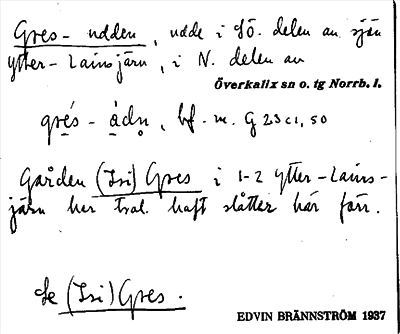 Gres-udden, udde i SÖ. delen av sjön
Ytter-Lainsjärn, i N. delen av
Överkalix sn o. tg Norrb. l.
gre̱s-a̱dn̥, bf. m. G 23 c1, 50
Gården (Isi) Gres i 1-2 Ytter-Lains-
järn har trol. haft slåtter här förr.
Se (Isi) Gres.
EDVIN BRÄNNSTRÖM 1937